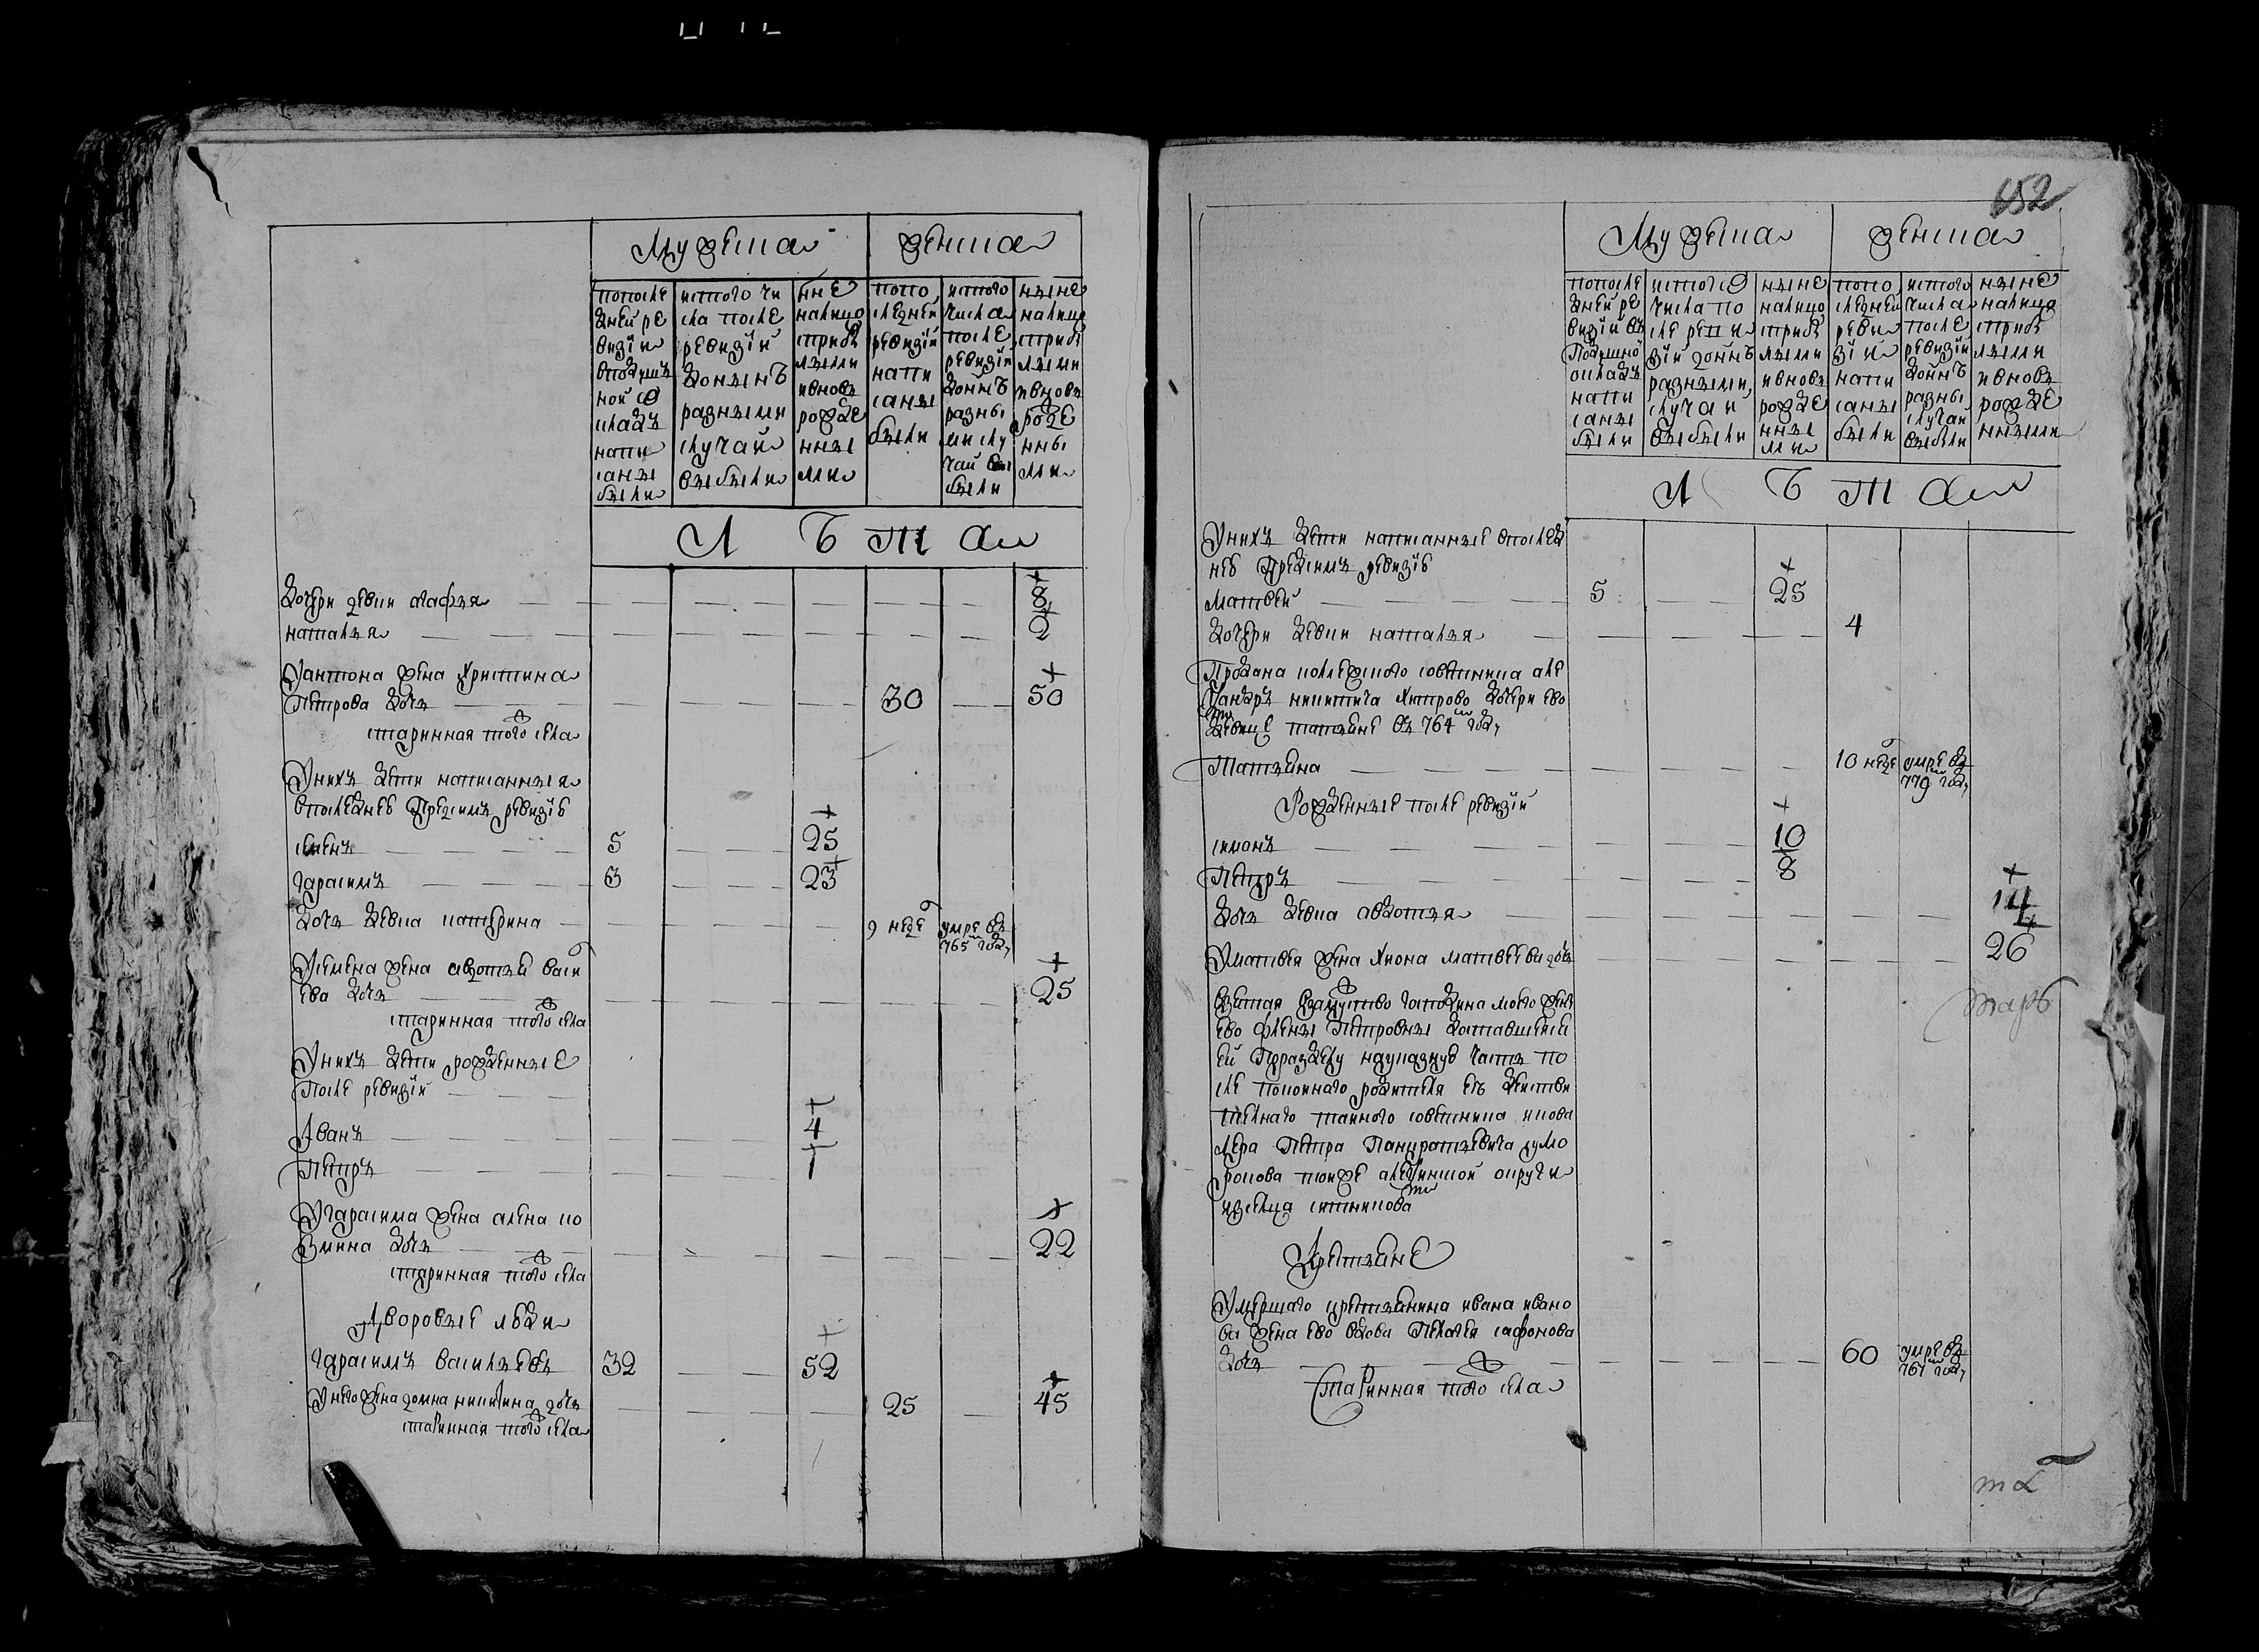 мужеска
женска
попосле
дней ре
визiи
вподуш
ной о
кладъ
напи
саны
были
истого чи
сла после
ревизiи
донынъ
разными
случаи
выбыли
ннѣ
налицо
стрибы
лыми
ивновь
рожде
нны
ми
попо
следней
ревизiи
напи
саны
были
истого
числа
после
ревизiи
донынъ
разны
ми слу
чаи вы
были
ныне
налицо
стрибы
лыми
ивновь
рожде
нны
ми
Л Ѣ Т А
дочери девки агафья 8
наталья 2
Уантона жена христина
Петрова дочь 30 50
старинная того села
Уних дети написанныя
впоследнею пред сим ревизiю
семенъ 5 25
гарасимъ 3 23
дочь девка катерина 9 неде умре въ
765 году
Усемена жена авдотья васи
ева дочь 25
старинная того села
Уних дети рожденные
После ревизiи
Иванъ 4
Петръ 1
Угарасима жена алена ко
змина дочь 22
старинная того села
Дворовые люди
гарасимъ васильевъ 32 52
Унего жена домна никитина дочь 25 45
старинная того села
652
мужеска
женска
попосле
дней ре
визiи въ
Подушно
окладъ
напи
саны
были
истого
числа по
сле реви
зiи доннъ
разными
случаи
выбыли
ныне
налицо
стрибы
лыми
ивновь
рожде
нны
ми
попо
следней
реви
зiи
напи
саны
были
истого
числа
после
ревизiи
доннъ
разны
случаи
выбыли
ныне
налицо
стрибы
лыми
ивновь
рожде
нными
Л Ѣ Т А
Уних дети написанные впослед
нею Пред сим ревизiю
матвей 5 25
дочери девки наталья 4
Продана колежского советника але
ксандръ никитича хитрово дочери ево
девице татьяне въ 764 году
Татьяна 10 неде умре въ
779 году
Рожденные после ревизiи
симонъ 10
Петръ 8
дочь девка авдотья 14
Уматвея жена хиона матвеева дочь 26
взятая взамужство господина моего жены
ево елены Петровны доставшейся
ей Поразделу наукaзную часть по
сле покоинаго родителя ея действи
тельнаго тайного советника икова
лера Петра Панкратьевича сумо
рокова тоиже алексинской округи
изсельца ситникова
Крестьяне
Умершаго крестьянина ивана ивано
ва жена ево вдова Пелагея сафонова
дочь 60 умре въ
767 году
Старинная того села